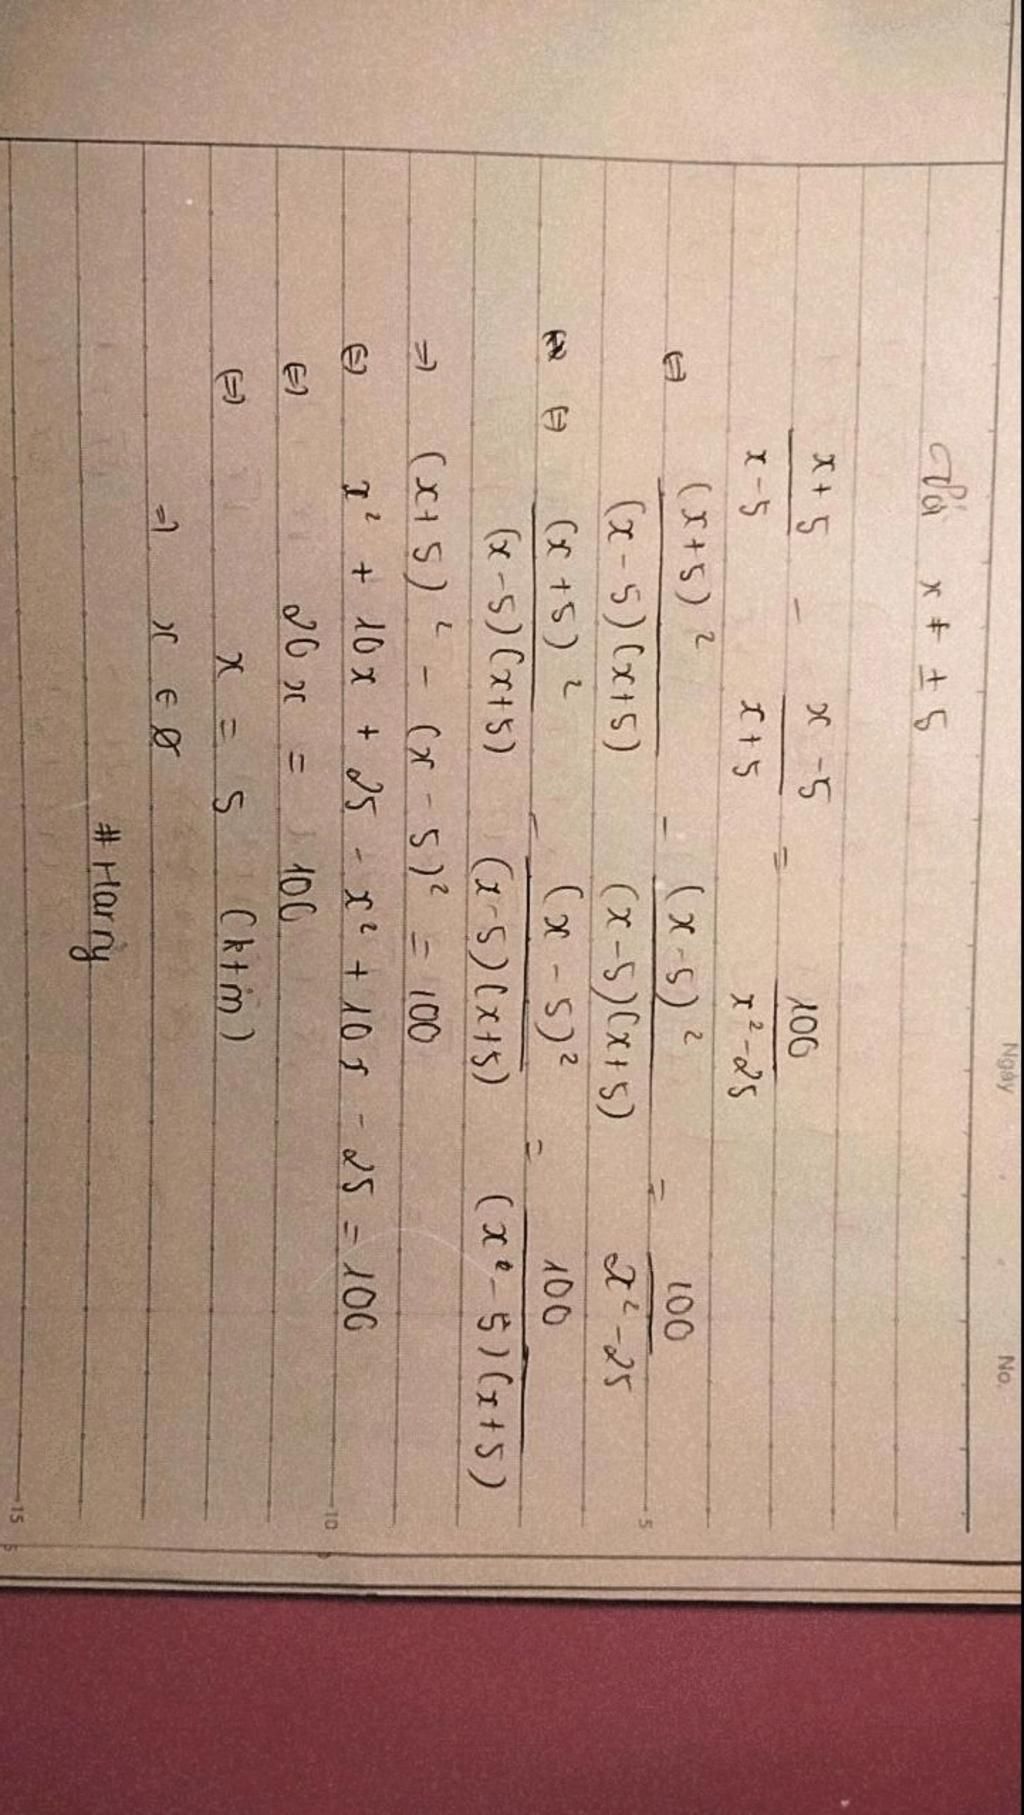 Ngày No.
x ≠ ± 5
x + 5 / x - 5 - x - 5 / x + 5 = 100 / x² - 25
⇔ (x + 5)² / (x - 5)(x + 5) - (x - 5)² / (x - 5)(x + 5) = 100 / x² - 25
⇔ (x + 5)² / (x - 5)(x + 5) - (x - 5)² / (x - 5)(x + 5) = 100 / (x² - 5)(x + 5)
⇒ (x + 5)² - (x - 5)² = 100
⇔ x² + 10x + 25 - x² + 10x - 25 = 100
⇔ 20x = 100
⇔ x = 5 (ktm)
⇒ x ∈ ∅
#Harry
5
10
15